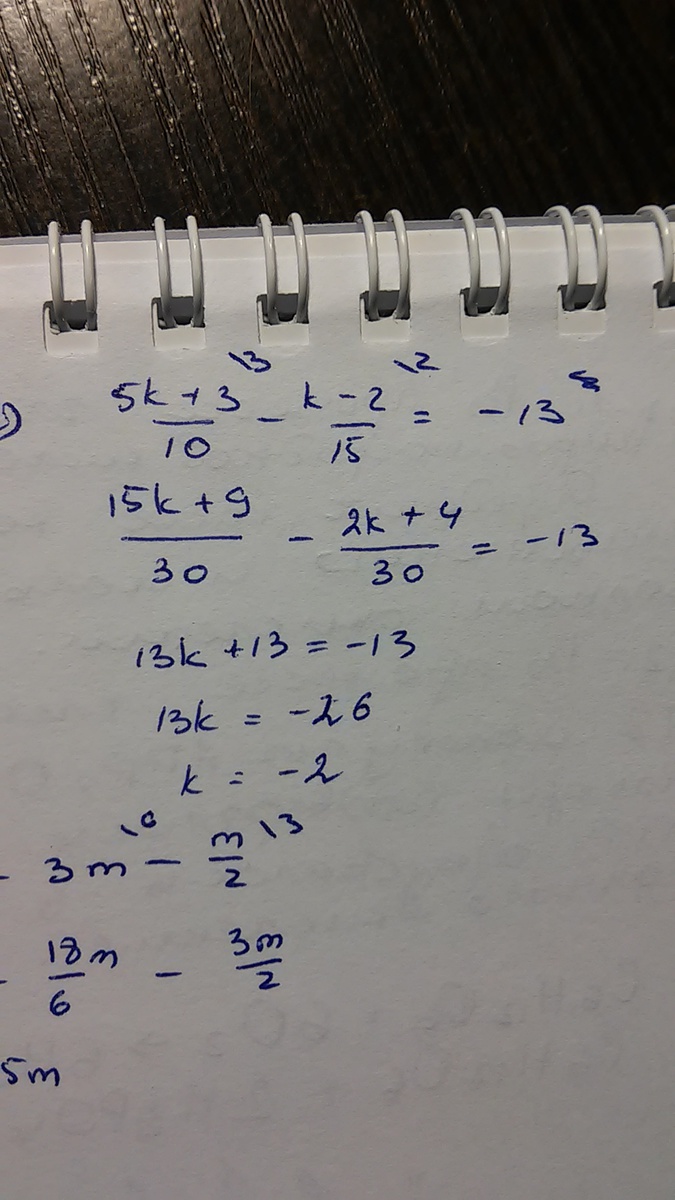 5k + 3 \3 / 10 - k - 2 \2 / 15 = -13
15k + 9 / 30 - 2k + 4 / 30 = -13
13k + 13 = -13
13k = -26
k = -2
- 3m \6 - m / 2 \3
- 18m / 6 - 3m / 2
5m